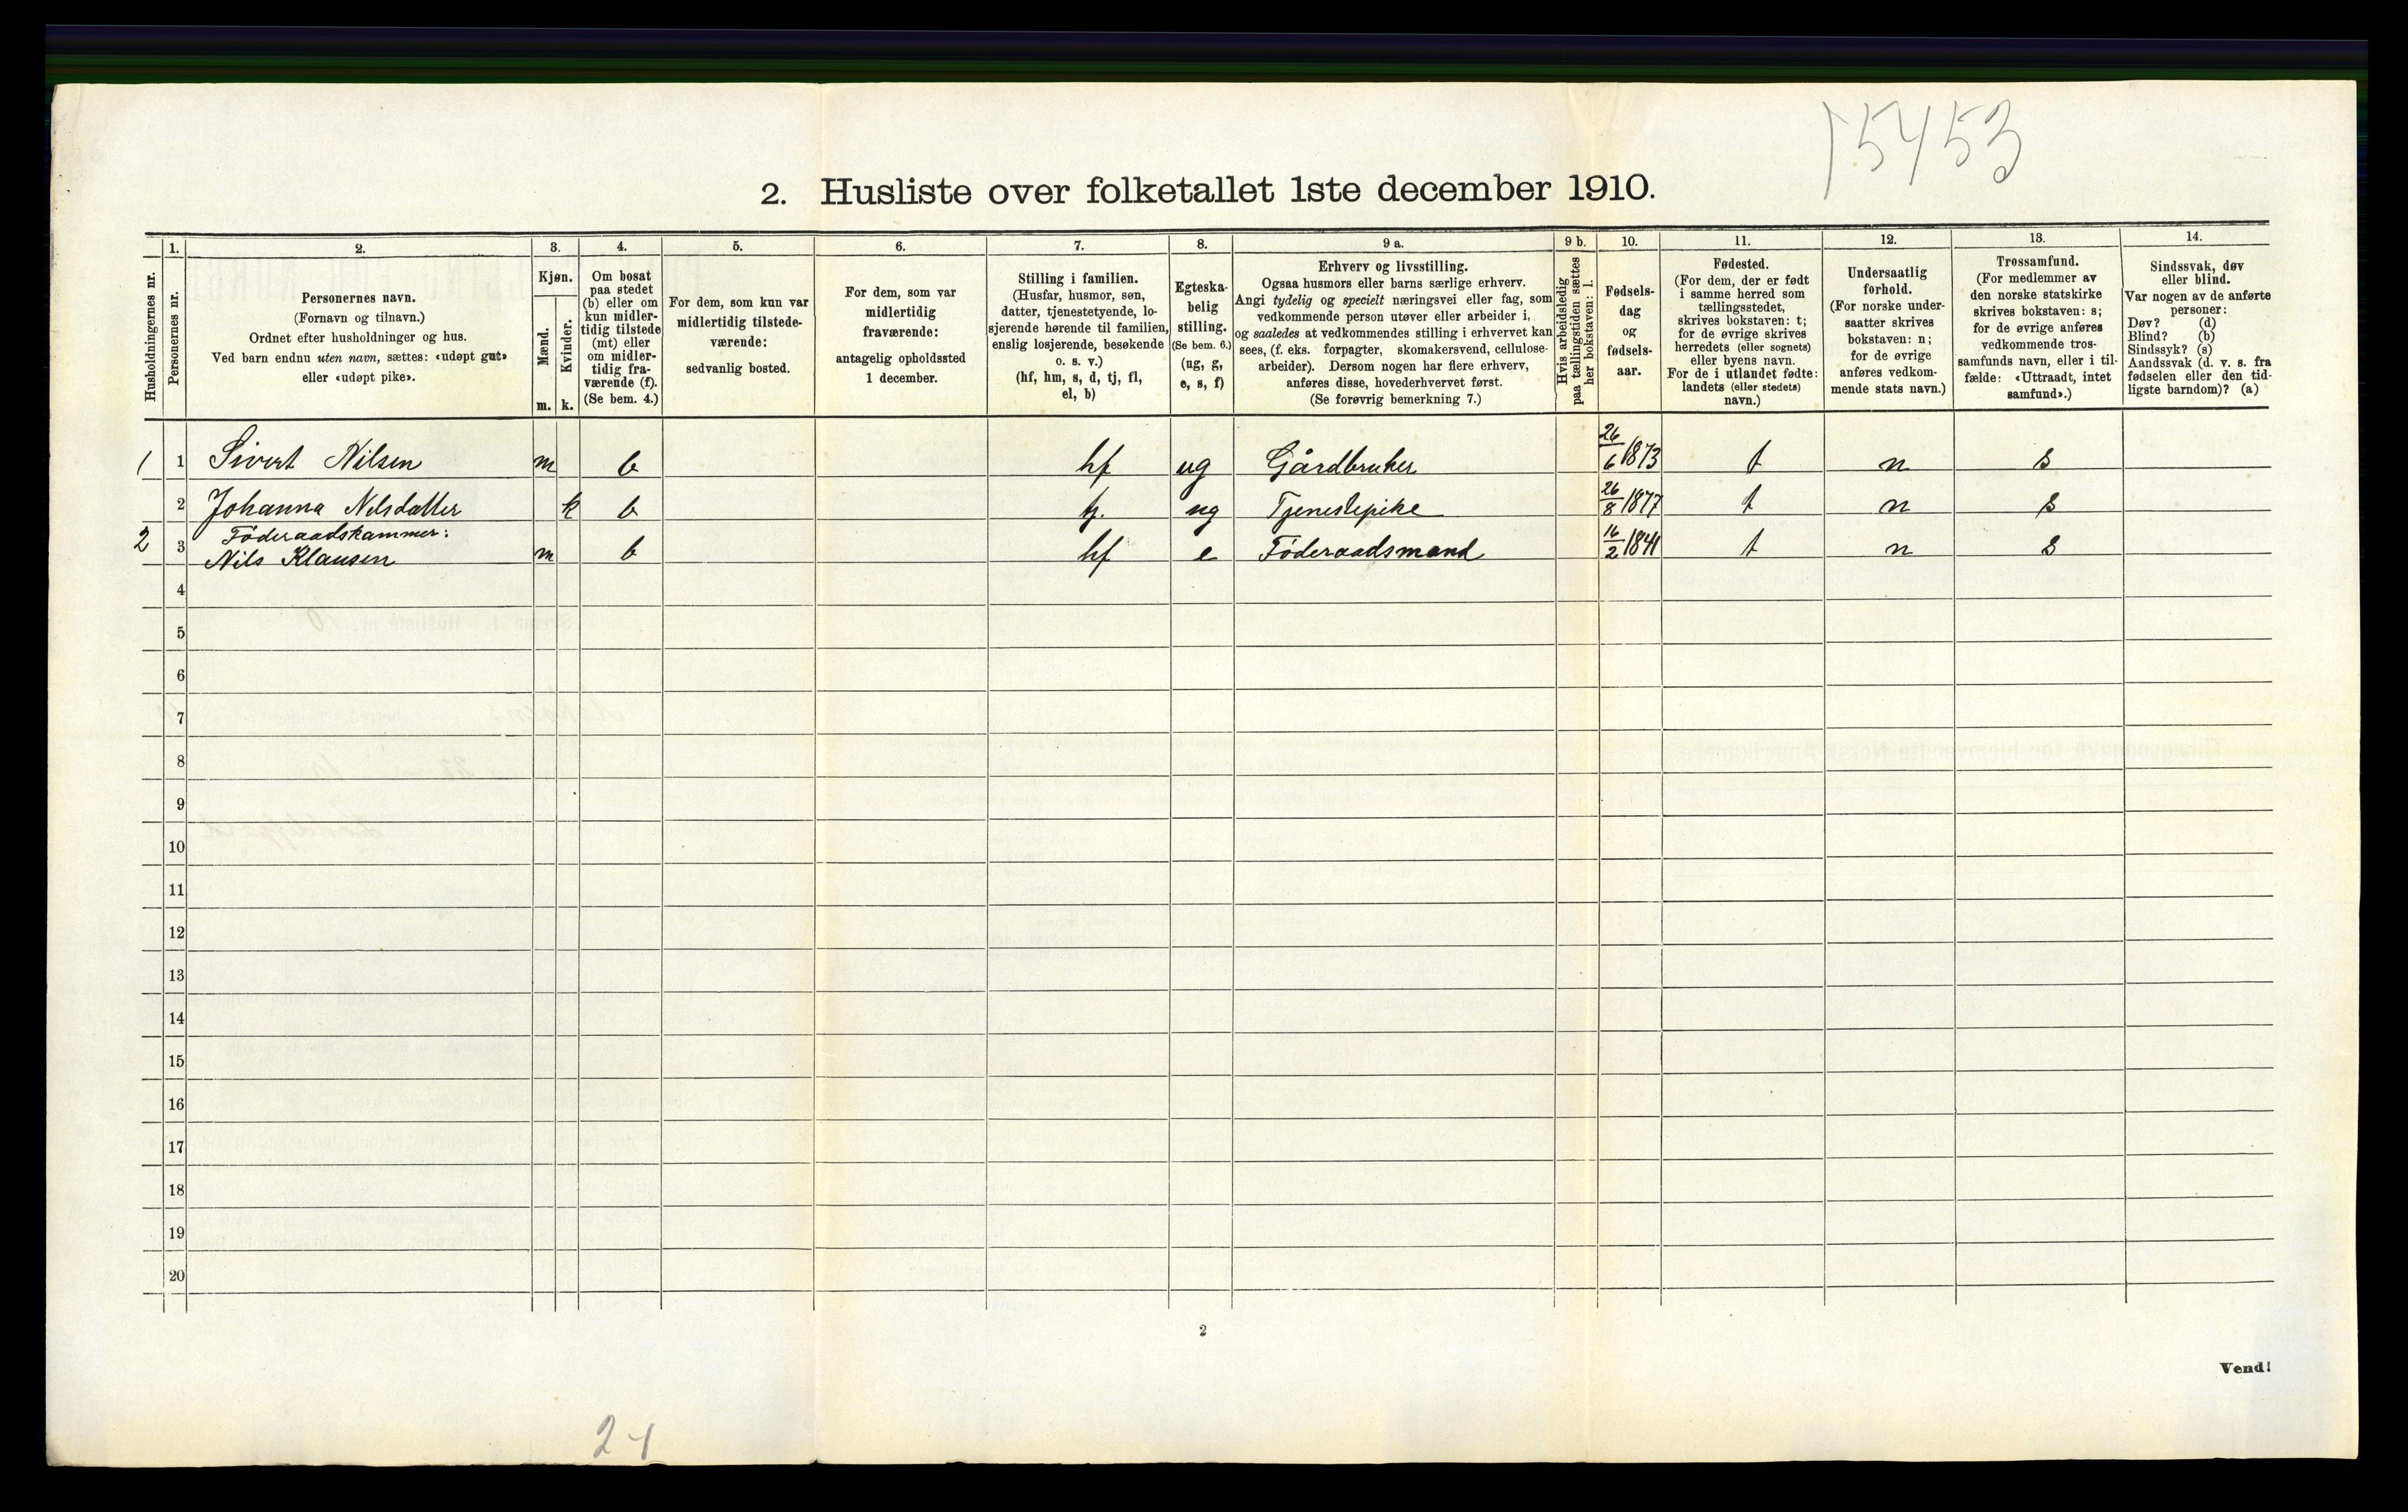 15453
2. Husliste over folketallet 1ste december 1910.
Husholdningernes nr.
1.
Personernes nr.
2.
Personernes navn.
(Fornavn og tilnavn.)
Ordnet efter husholdninger og hus.
Ved barn endnu uten navn, sættes: «udøpt gut»
eller «udøpt pike».
3.
Kjøn.
Mænd.
Kvinder.
m. k.
4.
Om bosat
paa stedet
(b) eller om
kun midler-
tidig tilstede
(mt) eller
om midler-
tidig fra-
værende (f).
(Se bem. 4.)
5.
For dem, som kun var
midlertidig tilstede-
værende:
sedvanlig bosted.
6.
For dem, som var
midlertidig
fraværende:
antagelig opholdssted
1 december.
7.
Stilling i familien.
(Husfar, husmor, søn,
datter, tjenestetyende, lo-
sjerende hørende til familien,
enslig losjerende, besøkende
o. s. v.)
(hf, hm, s, d, tj, fl,
el, b)
8.
Egteska-
belig
stilling.
(Se bem. 6.)
(ug, g,
e, s, f)
9 a.
Erhverv og livsstilling.
Ogsaa husmors eller barns særlige erhverv.
Angi tydelig og specielt næringsvei eller fag, som
vedkommende person utøver eller arbeider i,
og saaledes at vedkommendes stilling i erhvervet kan
sees, (f. eks. forpagter, skomakersvend, cellulose-
arbeider). Dersom nogen har flere erhverv,
anføres disse, hovederhvervet først.
(Se forøvrig bemerkning 7.)
9 b.
Hvis arbeidsledig
paa tællingstiden sættes
her bokstaven: l.
10.
Fødsels-
dag
og
fødsels-
aar.
11.
Fødested.
(For dem, der er født
i samme herred som
tællingsstedet,
skrives bokstaven: t;
for de øvrige skrives
herredets (eller sognets)
eller byens navn.
For de i utlandet fødte:
landets (eller stedets)
navn.)
12.
Undersaatlig
forhold.
(For norske under-
saatter skrives
bokstaven: n;
for de øvrige
anføres vedkom-
mende stats navn.)
13.
Trossamfund.
(For medlemmer av
den norske statskirke
skrives bokstaven: s;
for de øvrige anføres
vedkommende tros-
samfunds navn, eller i til-
fælde: «Uttraadt, intet
samfund».)
14.
Sindssvak, døv
eller blind.
Var nogen av de anførte
personer:
Døv? (d)
Blind? (b)
Sindssyk? (s)
Aandssvak (d. v. s. fra
fødselen eller den tid-
ligste barndom)? (a)
1 1 Sivert Nilsen m b hf ug Gårdbruker 26/6 1873 t n s
2 Johanna Nilsdatter k b tj. ug Tjenestepike 26/8 1877 t n s
Føderaadskammer:
2 3 Nils Klausen m b hf e Føderaadsmand 16/2 1841 t n s
4
5
6
7
8
9
10
11
12
13
14
15
16
17
18
19
20
2
Vend!